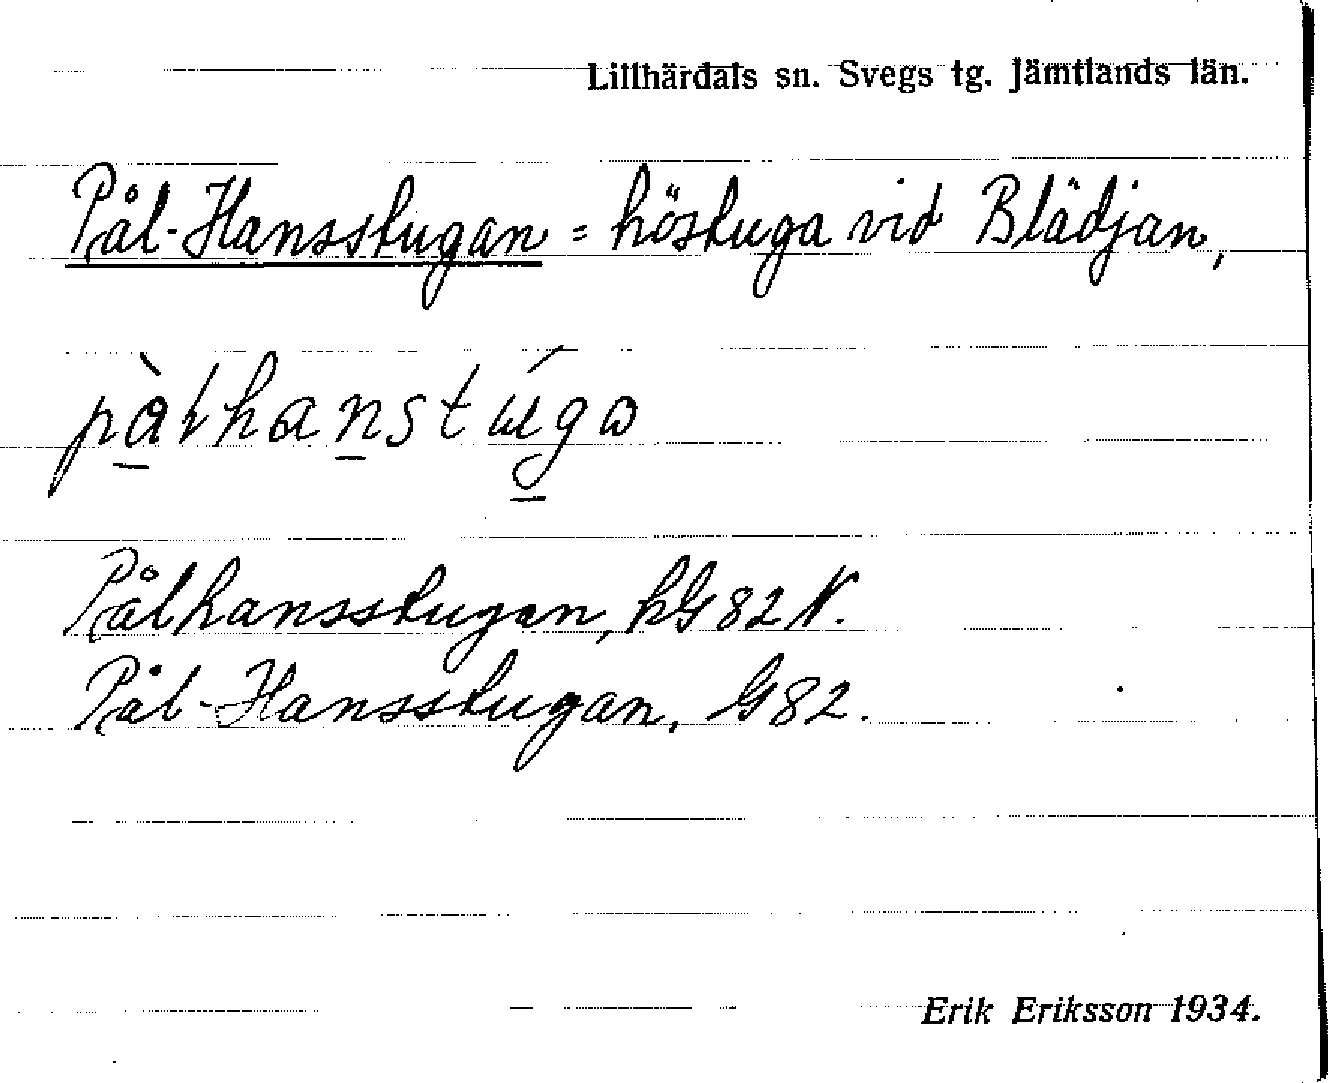 Lillhärdals sn. Svegs tg. Jämtlands län.
Pål-Hansstugan = höstuga vid Blädjan,
Pålhansstugan, hG 82 N.
Pål-Hansstugan, G 82.
Erik Eriksson 1934.